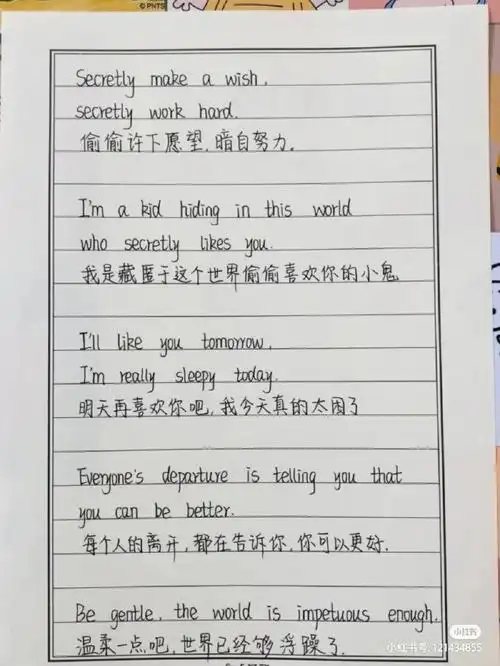 © PNTS
Secretly make a wish,
secretly work hard.
偷偷许下愿望,暗自努力。
I'm a kid hiding in this world
who secretly likes you.
我是藏匿于这个世界偷偷喜欢你的小鬼
I'll like you tomorrow,
I'm really sleepy today.
明天再喜欢你吧,我今天真的太困了
Everyone's departure is telling you that
you can be better.
每个人的离开,都在告诉你,你可以更好.
Be gentle, the world is impetuous enough.
温柔一点吧,世界已经够浮躁了.
小红书
小红书号:121434855